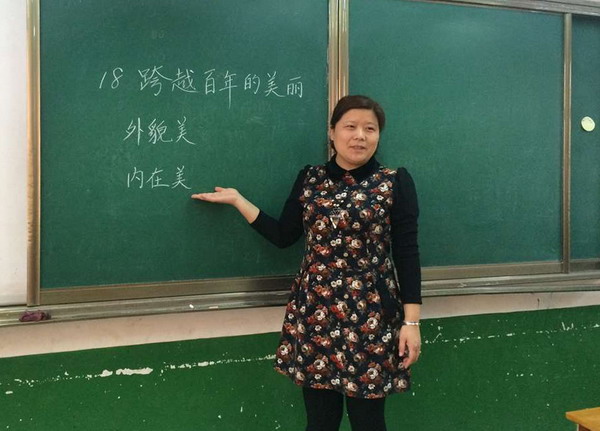 18 跨越百年的美丽
外貌美
内在美